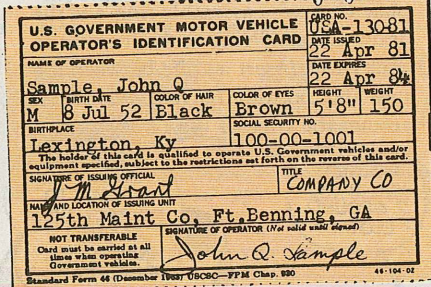 U.S. GOVERNMENT MOTOR VEHICLE
OPERATOR'S IDENTIFICATION CARD
CARD NO.
USA-130-81
DATE ISSUED
22 Apr 81
NAME OF OPERATOR
Sample, John Q
DATE EXPIRES
22 Apr 84
SEX
M
BIRTH DATE
8 Jul 52
COLOR OF HAIR
Black
COLOR OF EYES
Brown
HEIGHT
5'8"
WEIGHT
150
BIRTHPLACE
Lexington, Ky
SOCIAL SECURITY NO.
100-00-1001
The holder of this card is qualified to operate U.S. Government vehicles and/or
equipment specified, subject to the restrictions set forth on the reverse of this card.
SIGNATURE OF ISSUING OFFICIAL
J M Grant
TITLE
COMPANY CO
NAME AND LOCATION OF ISSUING UNIT
125th Maint Co, Ft. Benning, GA
NOT TRANSFERABLE
Card must be carried at all
times when operating
Government vehicles.
SIGNATURE OF OPERATOR (Not valid until signed)
John Q. Sample
Standard Form 46 (December 1963) USCSC—FPM Chap. 930
46-104-02